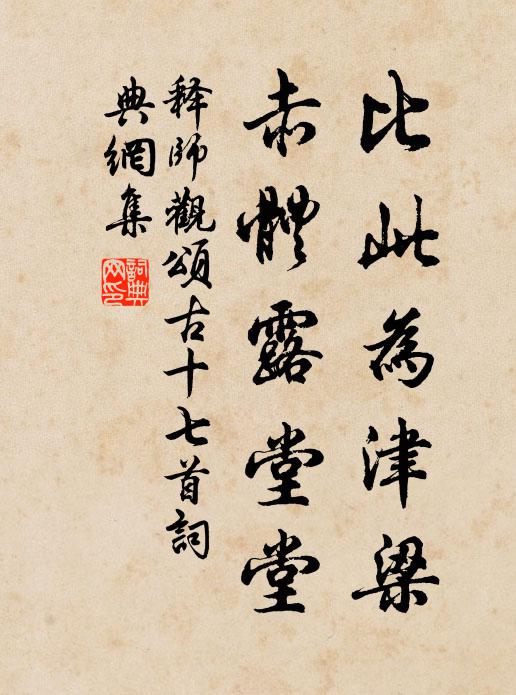 比此為津梁
赤體露堂堂
释師觀頌古十七首詞
典網集
詞典
网印